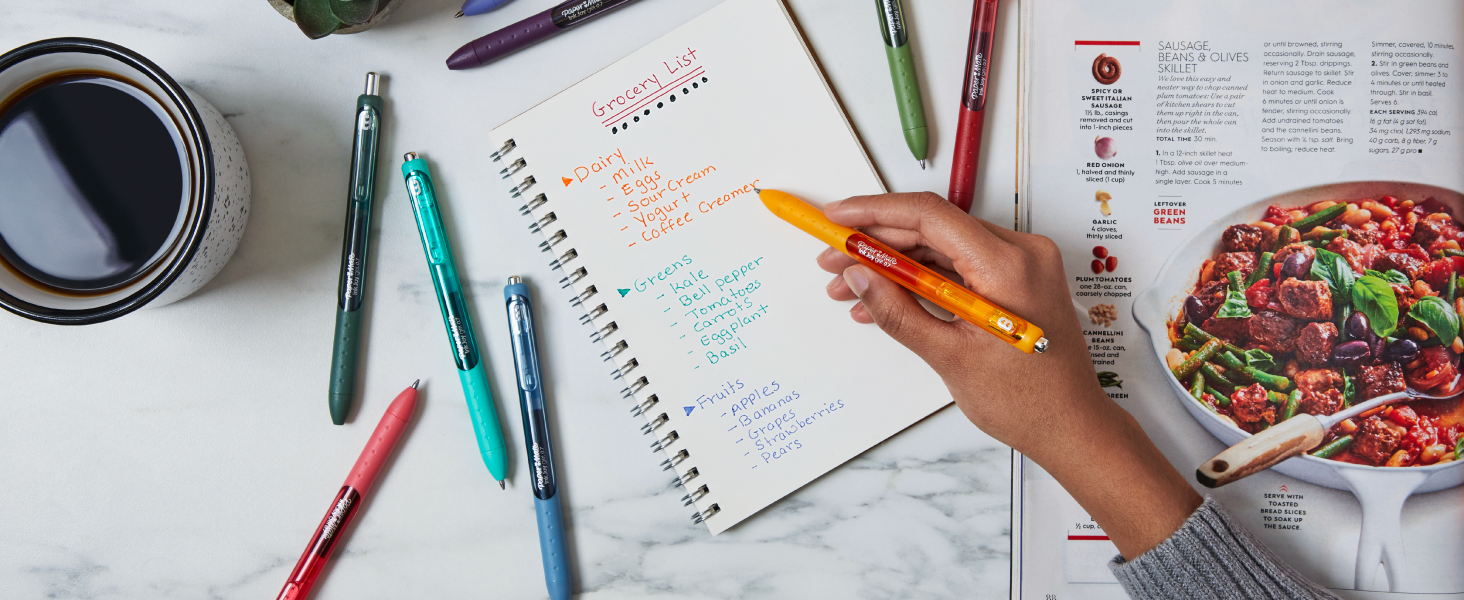 Grocery List
Dairy
- Milk
- Eggs
- Sour Cream
- Yogurt
- Coffee Creamer
Greens
- Kale
- Bell pepper
- Tomatoes
- Carrots
- Eggplant
- Basil
Fruits
- Apples
- Bananas
- Grapes
- Strawberries
- Pears
Paper Mate
InkJoy gel 0.7
Paper Mate
InkJoy gel 0.7
Paper Mate
InkJoy gel 0.7
Paper Mate
InkJoy gel 0.7
Paper Mate
InkJoy gel 0.7
SAUSAGE,
BEANS & OLIVES
SKILLET
We love this easy and
neater way to chop canned
plum tomatoes: Use a pair
of kitchen shears to cut
them up right in the can,
then pour the whole can
into the skillet.
TOTAL TIME 30 min.
1. In a 12-inch skillet heat
1 Tbsp. olive oil over medium-
high. Add sausage in a
single layer. Cook 5 minutes
or until browned, stirring
occasionally. Drain sausage,
reserving 2 Tbsp. drippings.
Return sausage to skillet. Stir
in onion and garlic. Reduce
heat to medium. Cook
6 minutes or until onion is
tender, stirring occasionally.
Add undrained tomatoes
and the cannellini beans.
Season with ¼ tsp. salt. Bring
to boiling; reduce heat.
Simmer, covered, 10 minutes,
stirring occasionally.
2. Stir in green beans and
olives. Cover; simmer 3 to
4 minutes or until heated
through. Stir in basil.
Serves 6.
EACH SERVING 394 cal,
16 g fat (4 g sat fat),
34 mg chol, 1,293 mg sodium,
40 g carb, 8 g fiber, 7 g
sugars, 27 g pro
SPICY OR
SWEET ITALIAN
SAUSAGE
1½ lb., casings
removed and cut
into 1-inch pieces
RED ONION
1, halved and thinly
sliced (1 cup)
GARLIC
4 cloves,
thinly sliced
PLUM TOMATOES
one 28-oz. can,
coarsely chopped
CANNELLINI
BEANS
15-oz. can,
LEFTOVER
GREEN
BEANS
SERVE WITH
TOASTED
BREAD SLICES
TO SOAK UP
THE SAUCE.
½ cup,